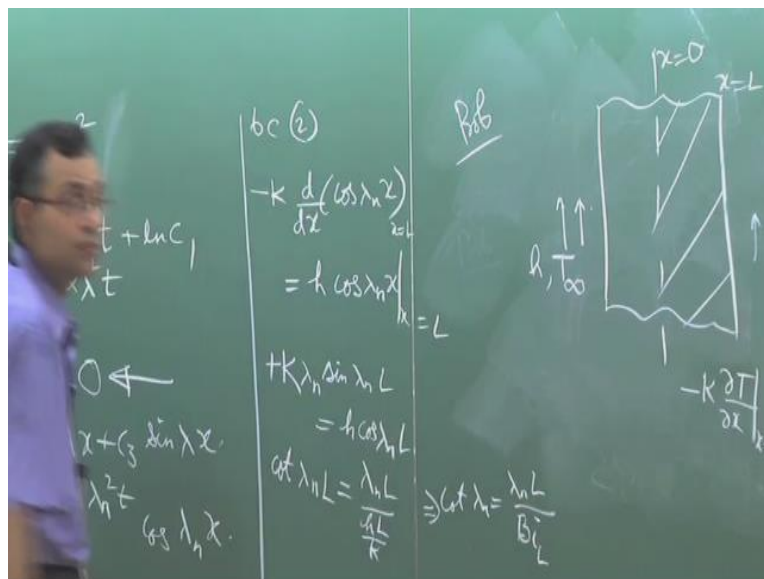 2
=
t + ln C₁
λ²t
0 ←
x + C₃ sin λx.
λₙ²t
cos λₙx.
bc (2)
-K d/dx (cos λₙx)ₓ₌L
= h cos λₙx|ₓ₌L
+Kλₙ sin λₙL
= h cos λₙL
cot λₙL = λₙL/(hL/K) ⇒ cot λₙ = λₙL/Bi_L
Bob
x=0
x=L
h, T∞
-K ∂T/∂x|ₓ